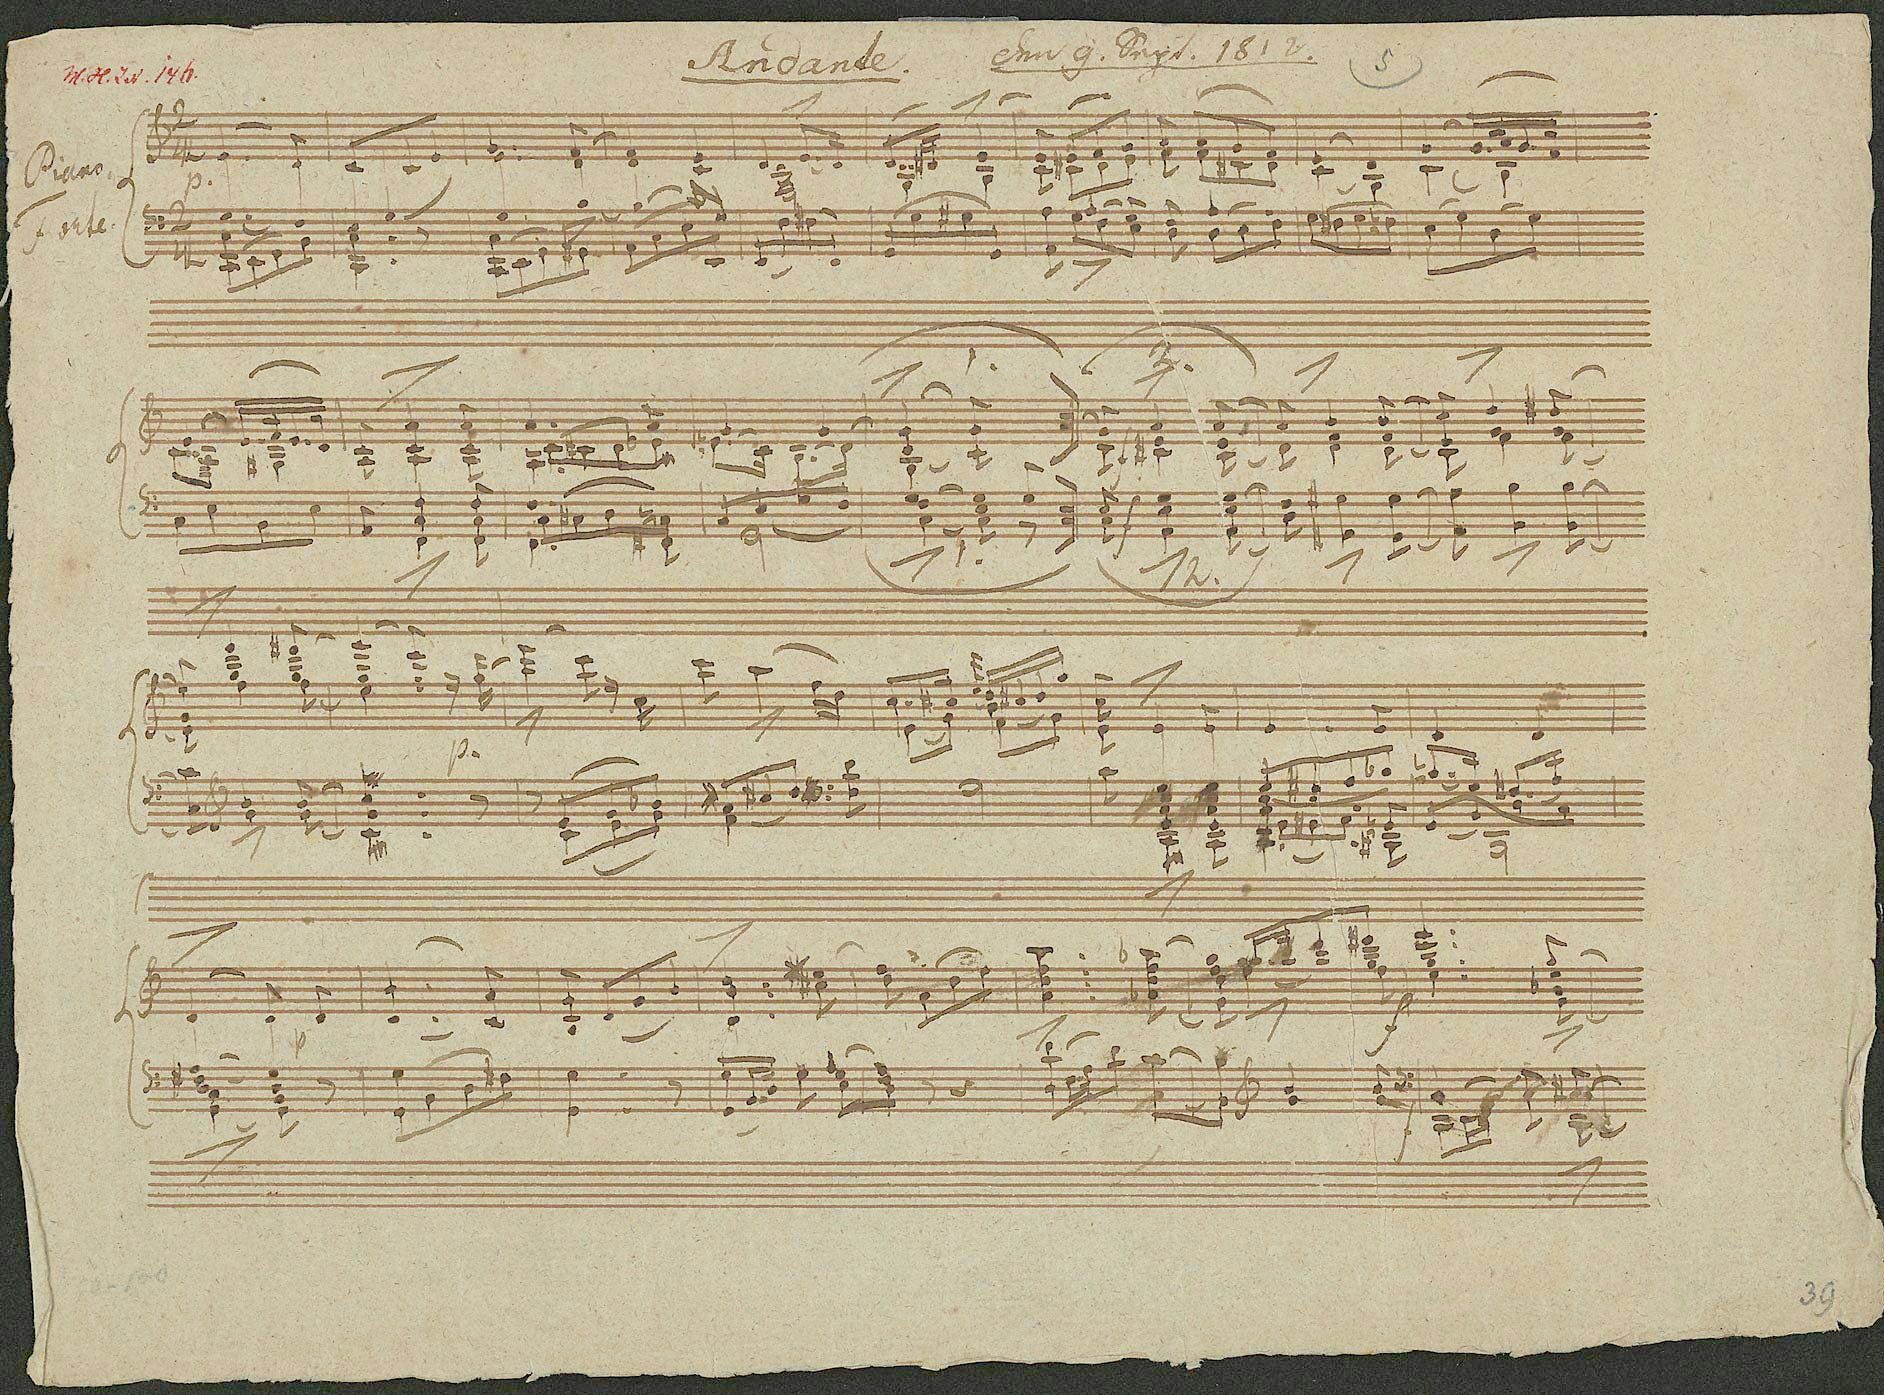 Andante. den 9. Sept. 1812. 5
M.H. 146.
Piano
Forte.
p.
1. 2.
f f
1. 2.
p.
p f
f
39